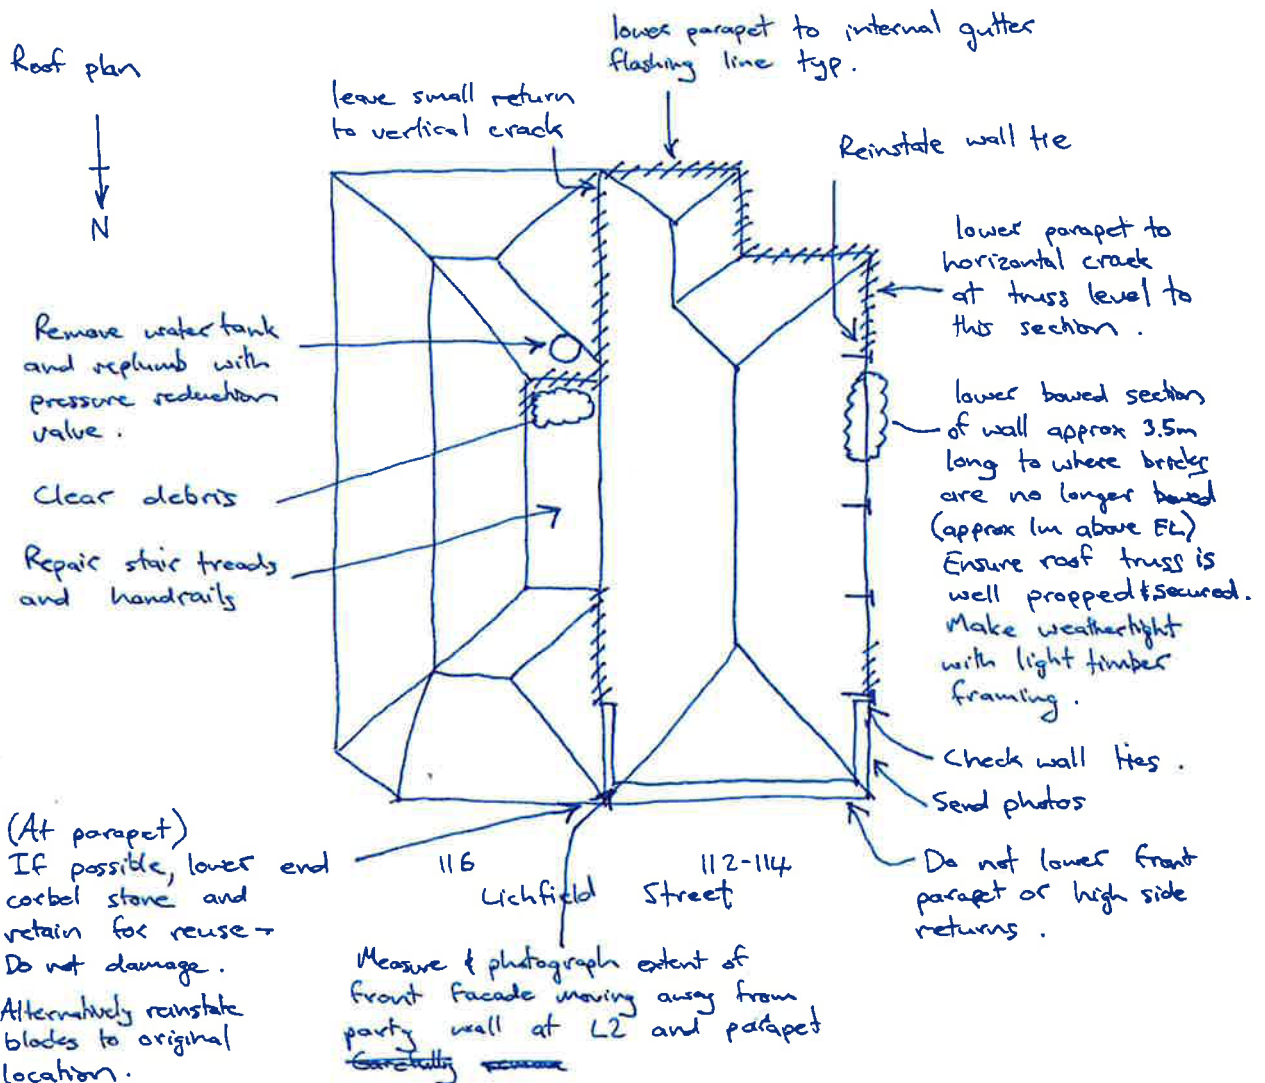 Roof plan
N
lower parapet to internal gutter
flashing line typ.
leave small return
to vertical crack
Reinstate wall tie
lower parapet to
horizontal crack
at truss level to
this section.
Remove water tank
and replumb with
pressure reduction
valve.
Clear debris
Repair stair treads
and handrails
lower bowed section
of wall approx 3.5m
long to where bricks
are no longer bowed
(approx 1m above FL)
Ensure roof truss is
well propped & secured.
Make weathertight
with light timber
framing.
Check wall ties.
Send photos
Do not lower front
parapet or high side
returns.
(At parapet)
If possible, lower end
corbel stone and
retain for reuse -
Do not damage.
Alternatively reinstate
blades to original
location.
116
112-114
Lichfield Street
Measure & photograph extent of
front facade moving away from
party wall at L2 and parapet
Carefully